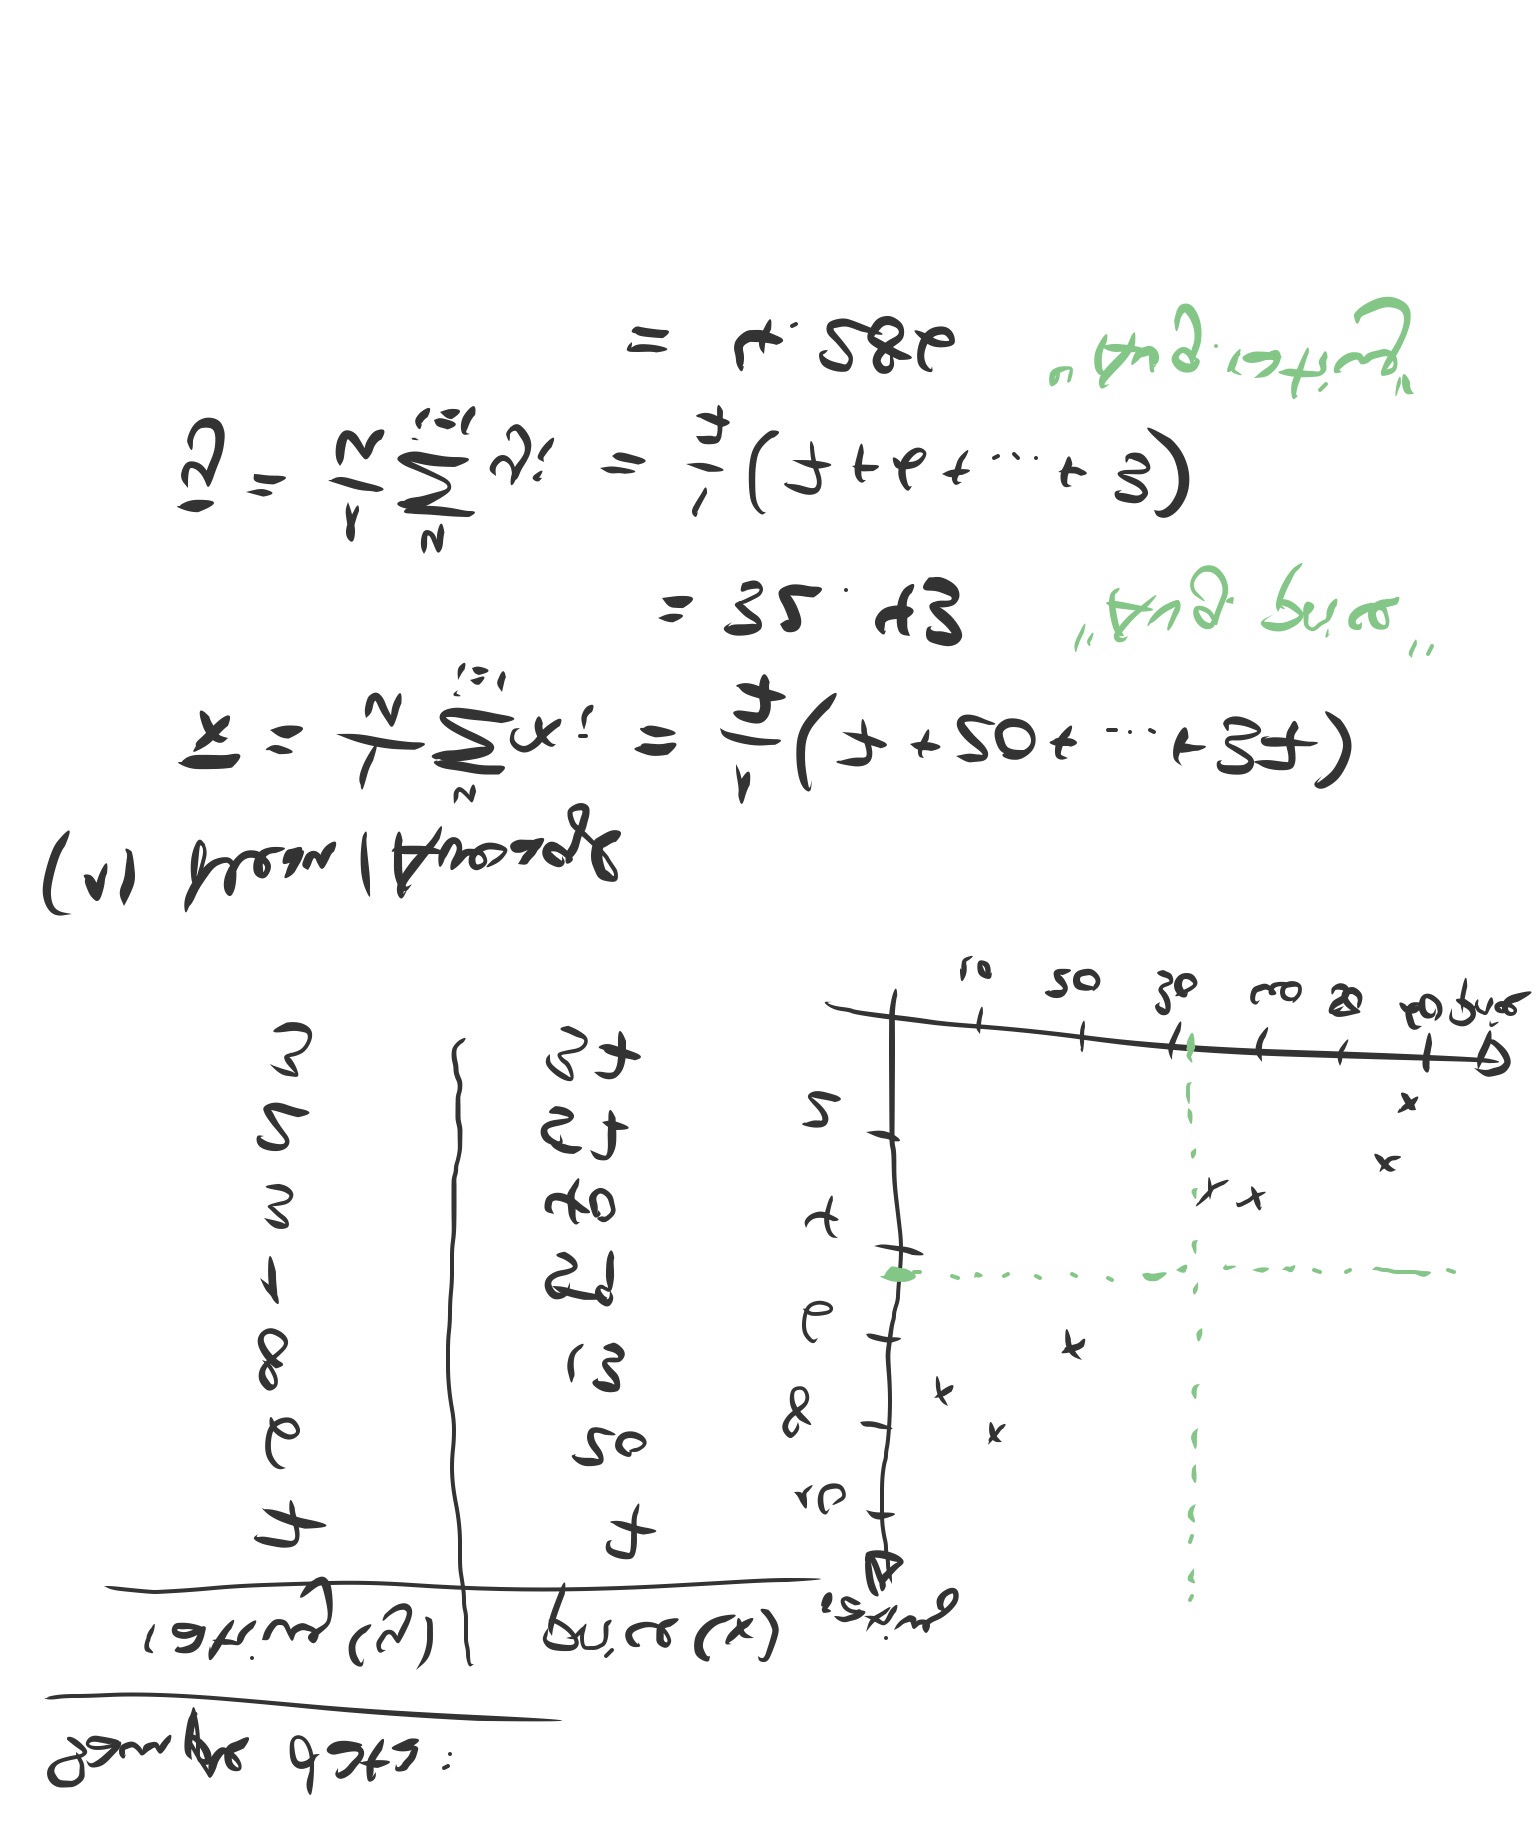 Sample data:
rating (y) | price (x)
7 | 7
6 | 20
8 | 13
1 | 59
3 | 40
2 | 57
3 | 37
rating
10
8
6
4
2
10 20 30 40 50 60 price
(1) Mean / Average
x̄ = 1/n ∑_{i=1}^{n} x_i = 1/7 (7 + 20 + ... + 37)
= 32.43 "Avg. price"
ȳ = 1/n ∑_{i=1}^{n} y_i = 1/7 (7 + 6 + ... + 3)
= 4.286 "Avg. rating"